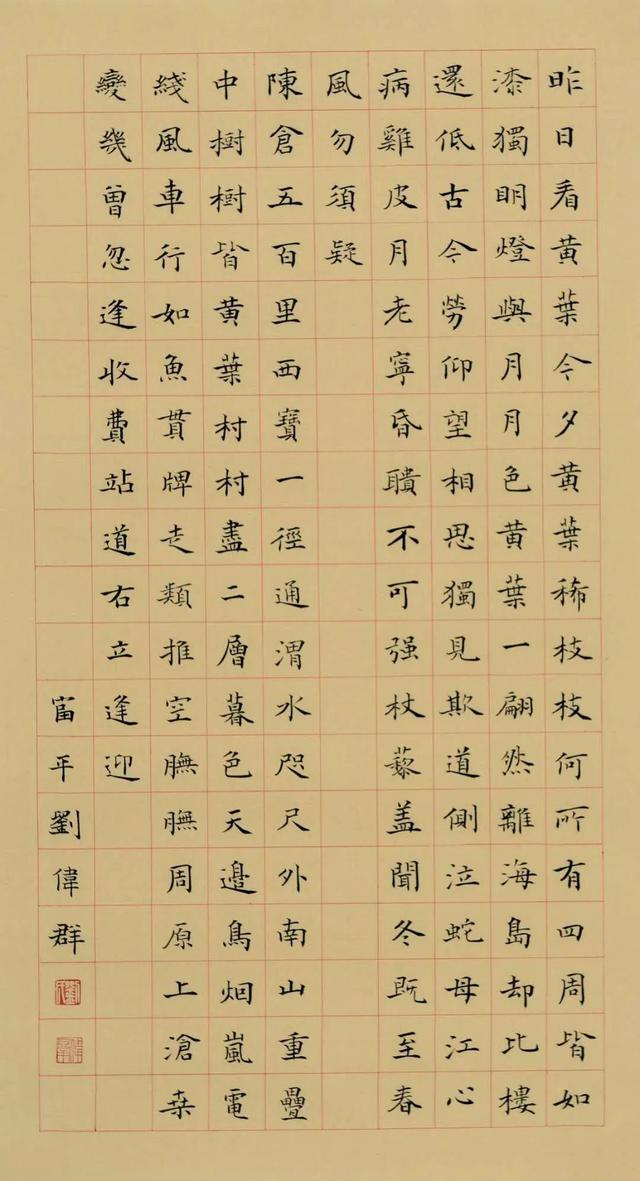 昨日看黃葉今夕黃葉稀枝枝何所有四周皆如
漆獨明燈與月月色黃葉一翩然離海島却比樓
還低古今勞仰望相思獨見欺道側泣蛇母江心
病雞皮月老寧昏聵不可强杖藜盖聞冬既至春
風勿須疑
陳倉五百里西寶一徑通渭水咫尺外南山重疊
中樹樹皆黃葉村村盡二層暮色天邊鳥烟嵐電
綫風車行如魚貫牌走類推空膴膴周原上滄桒
變幾曾忽逢收費站道右立逢迎
富平劉偉群